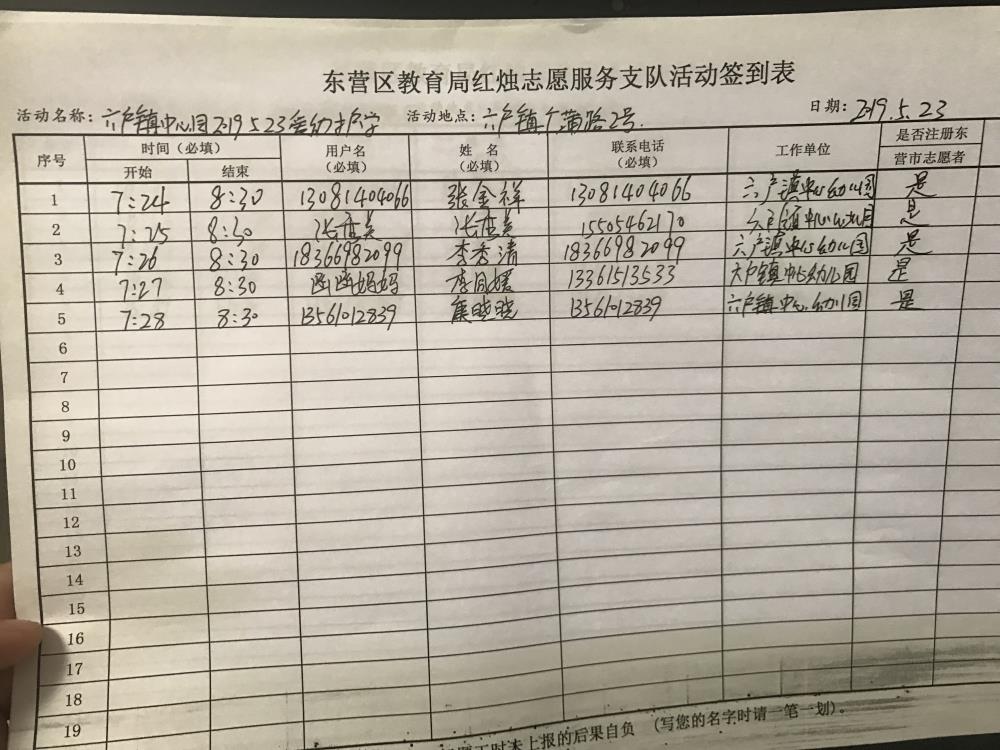 东营区教育局红烛志愿服务支队活动签到表
活动名称：六户镇中心园2019.5.23爱幼护学 活动地点：六户镇广蒲路2号. 日期：2019.5.23
序号 时间（必填） 用户名（必填） 姓名（必填） 联系电话（必填） 工作单位 是否注册东营市志愿者
开始 结束
1 7:24 8:30 13081404066 张金祥 13081404066 六户镇中心幼儿园 是
2 7:25 8:30 15505462170 六户镇中心幼儿园 是
3 7:26 8:30 18366982099 李秀清 18366982099 六户镇中心幼儿园 是
4 7:27 8:30 函函妈妈 李月媛 13361513533 六户镇中心幼儿园 是
5 7:28 8:30 13561012839 晓晓 13561012839 六户镇中心幼儿园 是
6
7
8
9
10
11
12
13
14
15
16
17
18
19
工时未上报的后果自负 （写您的名字时请一笔一划）。